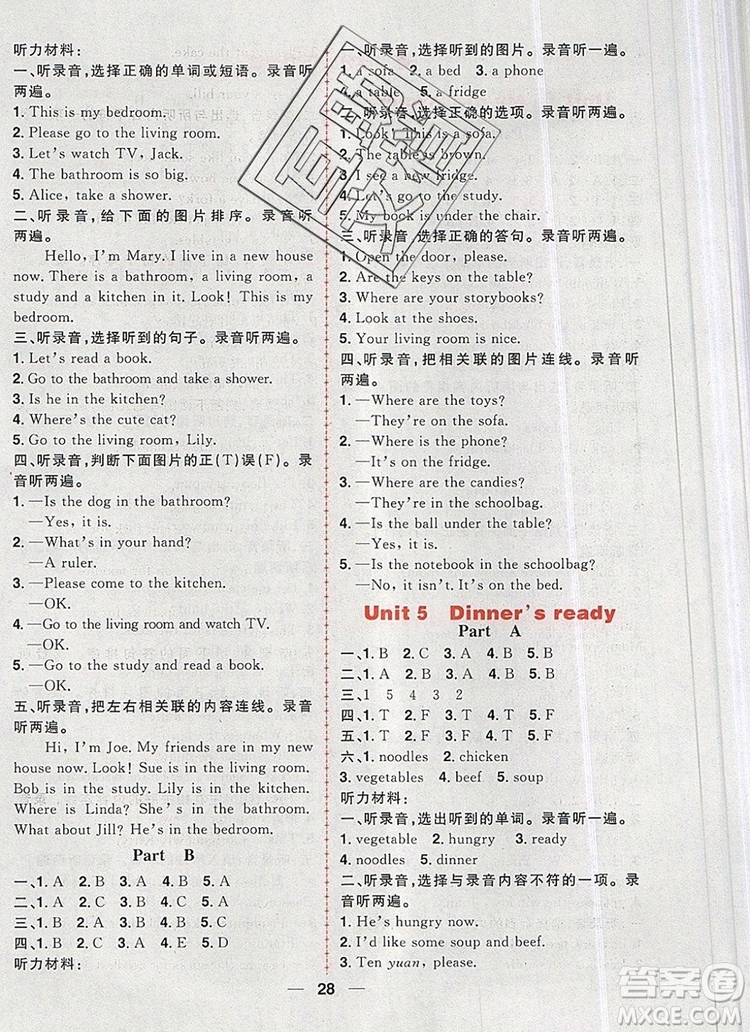 听力材料:
一、听录音,选择正确的单词或短语。录音
听两遍。
1. This is my bedroom.
2. Please go to the living room.
3. Let's watch TV, Jack.
4. The bathroom is so big.
5. Alice, take a shower.
二、听录音,给下面的图片排序。录音听
两遍。
Hello, I'm Mary. I live in a new house
now. There is a bathroom, a living room, a
study and a kitchen in it. Look! This is my
bedroom.
三、听录音,选择听到的句子。录音听两遍。
1. Let's read a book.
2. Go to the bathroom and take a shower.
3. Is he in the kitchen?
4. Where's the cute cat?
5. Go to the living room, Lily.
四、听录音,判断下面图片的正(T)误(F)。录
音听两遍。
1. —Is the dog in the bathroom?
—Yes, it is.
2. —What's in your hand?
—A ruler.
3. —Please come to the kitchen.
—OK.
4. —Go to the living room and watch TV.
—OK.
5. —Go to the study and read a book.
—OK.
五、听录音,把左右相关联的内容连线。录音
听两遍。
Hi, I'm Joe. My friends are in my new
house now. Look! Sue is in the living room.
Bob is in the study. Lily is in the kitchen.
Where is Linda? She's in the bathroom.
What about Jill? He's in the bedroom.
Part B
一、1. A 2. B 3. A 4. A 5. A
二、1. A 2. C 3. B 4. B 5. C
三、1. A 2. B 3. B 4. A 5. A
四、1. C 2. B 3. A 4. E 5. D
听力材料:
一、听录音,选择听到的图片。录音听一遍。
1. a sofa 2. a bed 3. a phone
4. a table 5. a fridge
二、听录音,选择正确的选项。录音听两遍。
1. Look! This is a sofa.
2. The table is brown.
3. I see a new fridge.
4. Let's go to the study.
5. My book is under the chair.
三、听录音,选择正确的答句。录音听两遍。
1. Open the door, please.
2. Are the keys on the table?
3. Where are your storybooks?
4. Look at the shoes.
5. Your living room is nice.
四、听录音,把相关联的图片连线。录音听
两遍。
1. —Where are the toys?
—They're on the sofa.
2. —Where is the phone?
—It's on the fridge.
3. —Where are the candies?
—They're in the schoolbag.
4. —Is the ball under the table?
—Yes, it is.
5. —Is the notebook in the schoolbag?
—No, it isn't. It's on the bed.
Unit 5 Dinner's ready
Part A
一、1. B 2. C 3. A 4. B 5. B
二、1. A 2. C 3. B 4. A 5. B
三、1 5 4 3 2
四、1. T 2. F 3. F 4. T 5. T
五、1. T 2. F 3. T 4. F 5. F
六、1. noodles 2. chicken
3. vegetables 4. beef 5. soup
听力材料:
一、听录音,选出听到的单词。录音听一遍。
1. vegetable 2. hungry 3. ready
4. noodles 5. dinner
二、听录音,选择与录音内容不符的一项。录
音听两遍。
1. He's hungry now.
2. I'd like some soup and beef.
3. Ten yuan, please.
28
答案圈
MXQE.COM